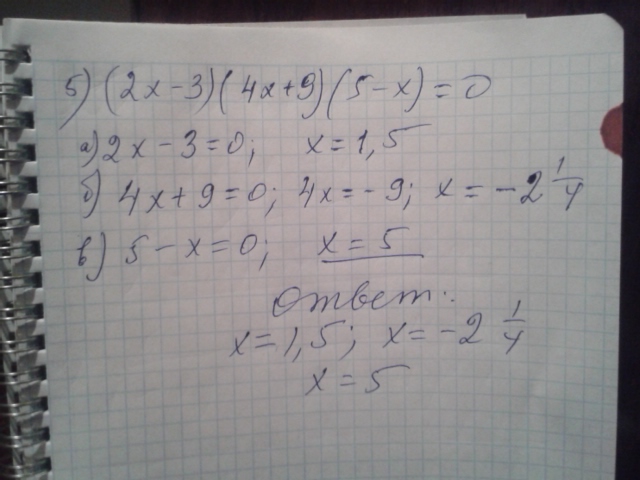 5) (2x-3)(4x+9)(5-x)=0
а) 2x-3=0; x=1,5
б) 4x+9=0; 4x=-9; x=-2 1/4
в) 5-x=0; x=5
Ответ:
x=1,5; x=-2 1/4
x=5